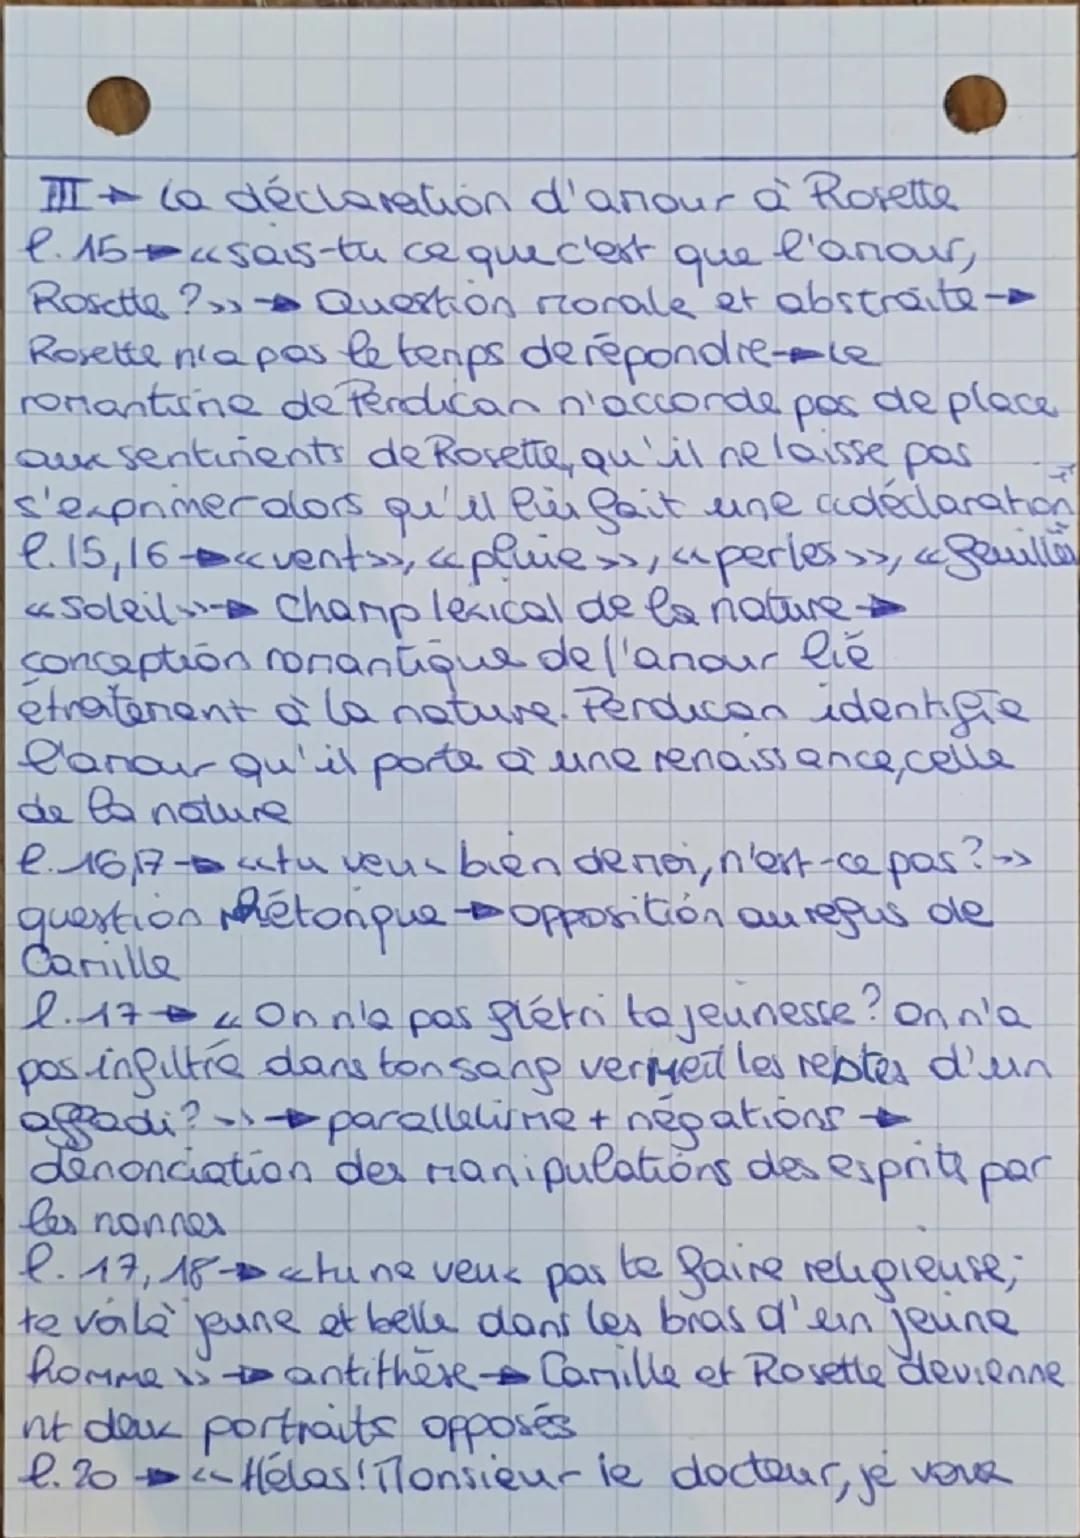 III → La déclaration d'amour à Rosette
l. 15 → « sais-tu ce que c'est que l'amour,
Rosette ? » → Question morale et abstraite →
Rosette n'a pas le temps de répondre → le
romantisme de Perdican n'accorde pas de place
aux sentiments de Rosette, qu'il ne laisse pas
s'exprimer alors qu'il lui fait une « déclaration »
l. 15, 16 → « vent », « pluie », « perles », « feuilles »
« soleil » → Champ lexical de la nature →
conception romantique de l'amour lié
étraitement à la nature. Perdican identifie
l'amour qu'il porte à une renaissance, celle
de la nature
l. 16,17 → « tu veux bien de moi, n'est-ce pas ? »
question rhétorique → opposition au refus de
Camille
l. 17 → « On n'a pas flétri ta jeunesse ? On n'a
pas infiltré dans ton sang vermeil les restes d'un
affadi ? » → parallélisme + négations →
dénonciation des manipulations des esprits par
les nonnes
l. 17, 18 → « tu ne veux pas te faire religieuse ;
te voilà jeune et belle dans les bras d'un jeune
homme » → antithèse → Camille et Rosette devienne
nt deux portraits opposés
l. 20 → « Hélas ! Monsieur le docteur, je vous